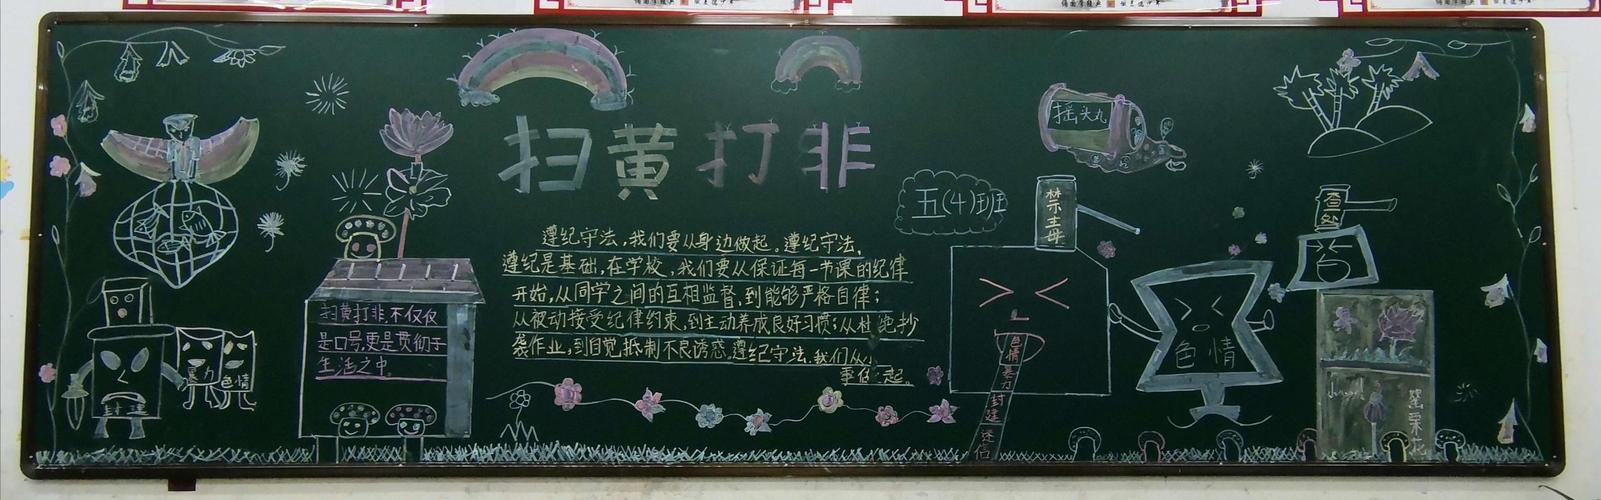 扫黄打非
摇头丸
五(4)班
禁毒
查处
遵纪守法,我们要从身边做起。遵纪守法,
遵纪是基础,在学校,我们要从保证每一节课的纪律
开始,从同学之间的互相监督,到能够严格自律;
从被动接受纪律约束,到主动养成良好习惯;从杜绝抄
袭作业,到自觉抵制不良诱惑,遵纪守法,我们从小
事做起。
扫黄打非,不仅仅
是口号,更是贯彻于
生活之中。
封建
暴力
色情
色情暴力
封建
迷信
色情
罂粟花